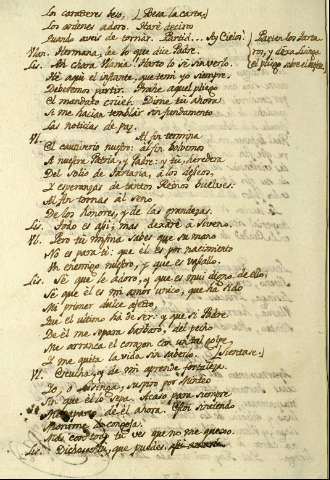 Los caracteres beso, (Besa la carta,)
Los ordenes adoro. Haré preciso
Quando aveis de tornar. Partid... Ay Cielos!
Ulan. Hermana, lee lo que dice Padre.
Lis. Ah chara Ulania! Harto lo sé sin verlo.
He aqui el infante, que temi yo siempre.
Deberemos partir. Trahe aquel pliego
El mandato cruel. Dime tu ahora
Si me hacian temblar sin fundamento
Las noticias de paz.
Ul. Al fin termina
El cautiverio nuestro: al fin bolvemos
A nuestra Patria, y Padre: y tu, heredera
Del Solio de Tartaria, à los deseos,
Y esperanzas de tantos Reinos buelves.
Al fin tornas al seno
De los honores, y de las grandezas.
Lis. Todo es asi; mas dexaré à Siveno.
Ul. Pero tu misma sabes que su mano
No es para ti: que él es por nacimiento
Un enemigo nuestro, y que es vasallo.
Lis. Sé que le adoro, y que es mui digno de ello;
Sé que él es mi amor unico, que ha sido
Mi primer dulce afecto,
Que el ultimo ha de ser: y que si Padre
De él me separa barbaro, del pecho
Me arranca el corazon con un tal golpe,
Y me quita la vida sin saberlo. (Sientase.)
Ul. Escucha, y de mi aprende fortaleza.
Yo, ò Lisinga, suspiro por Minteo
Sin que el lo sepa. Acaso para siempre
Me aparto de él ahora. Estoi sintiendo
Morirme de congoja.
Mas con todo tu ves que no me quexo.
Lis. Dichosa tu, que puedes,
(Parten los Tartaros, y dexa Lisinga el pliego sobre el bufete.)